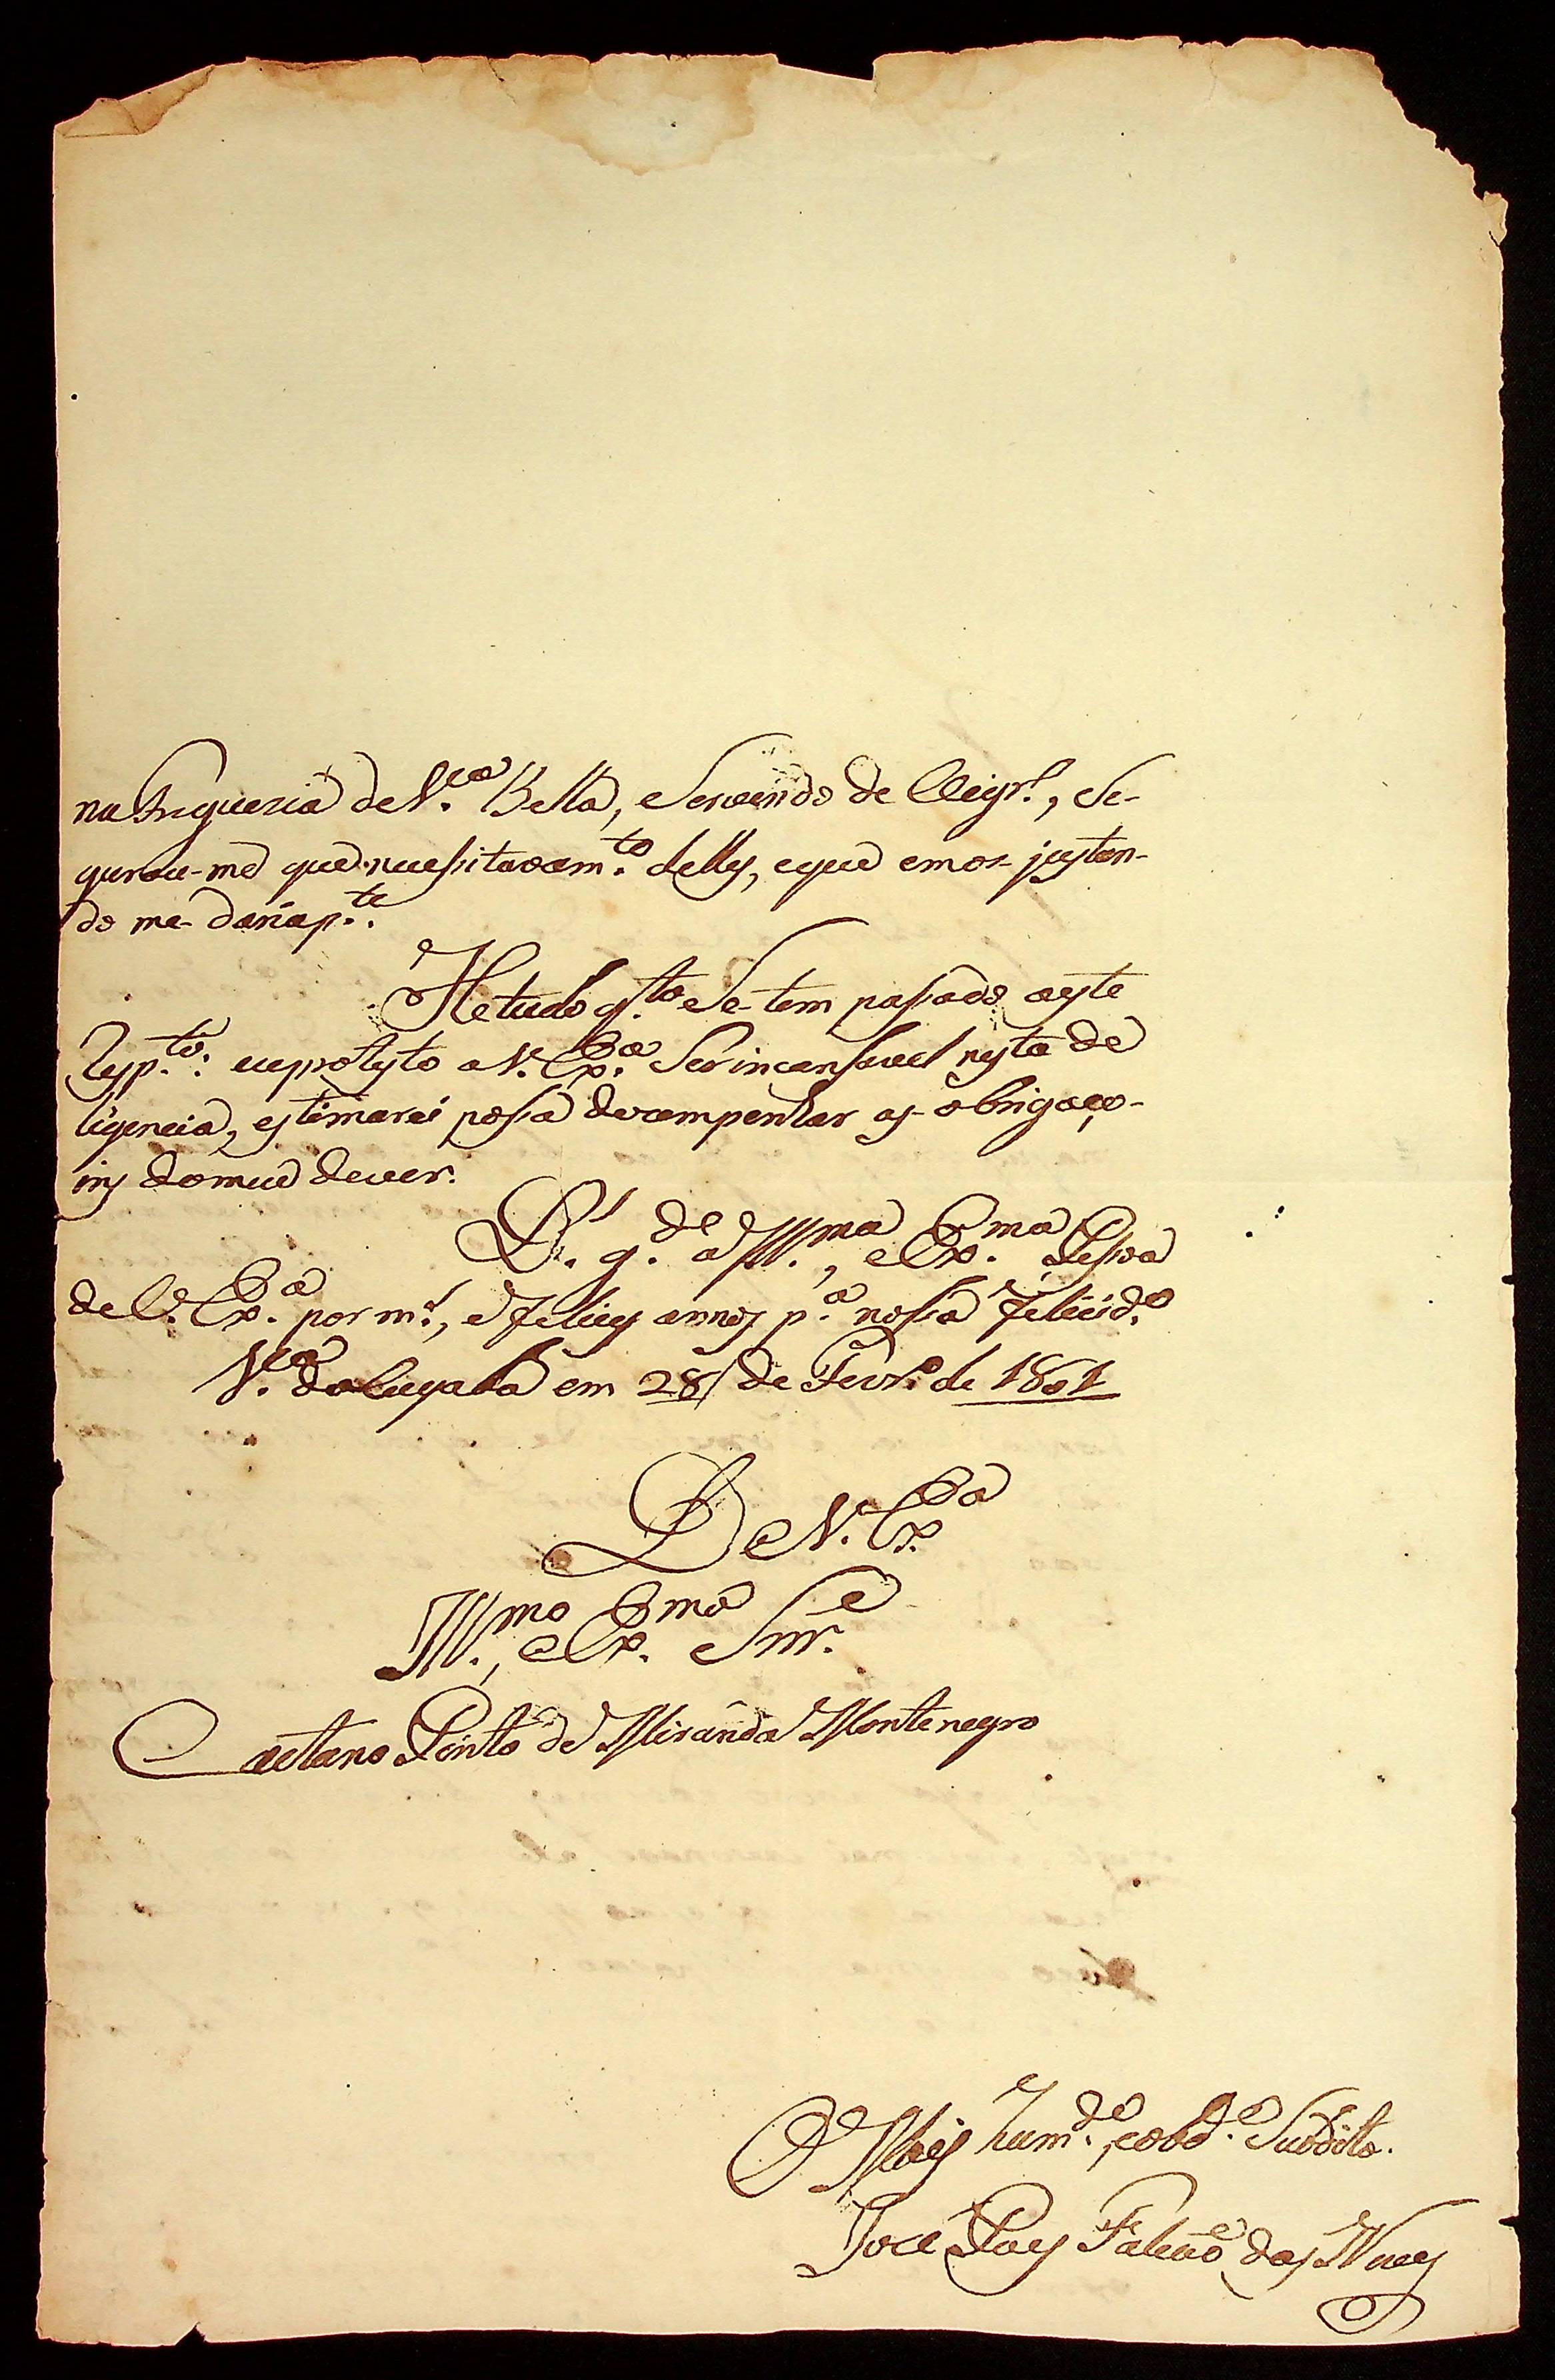 na Freguezia de V.ª Bella, e Servindo de
gurou-me que necessitavam.to delles, e que emos justan-
do me daria p.te.
He tudo q.to Se tem passado a este
Resp.to: e eu protesto a V. Ex.ª Ser incansavel nesta de
ligencia, estimarei possa dezempenhar as obrigaço-
ins do meu dever.
D.s g.de a Ill.ma, e Ex.ma Pessoa
de V. Ex.ª por m.s, e felices annos p.ª nossa felicid.e
V.ª do Cuyaba em 28 de Fevr.o de 1801
De V. Ex.ª
Ill.mo, e Ex.mo Snr.e
Caetano Pinto de Miranda Montenegro
O Mais hum.de, e obd.e Subdito.
Joze Paes Falcaõ das Neves